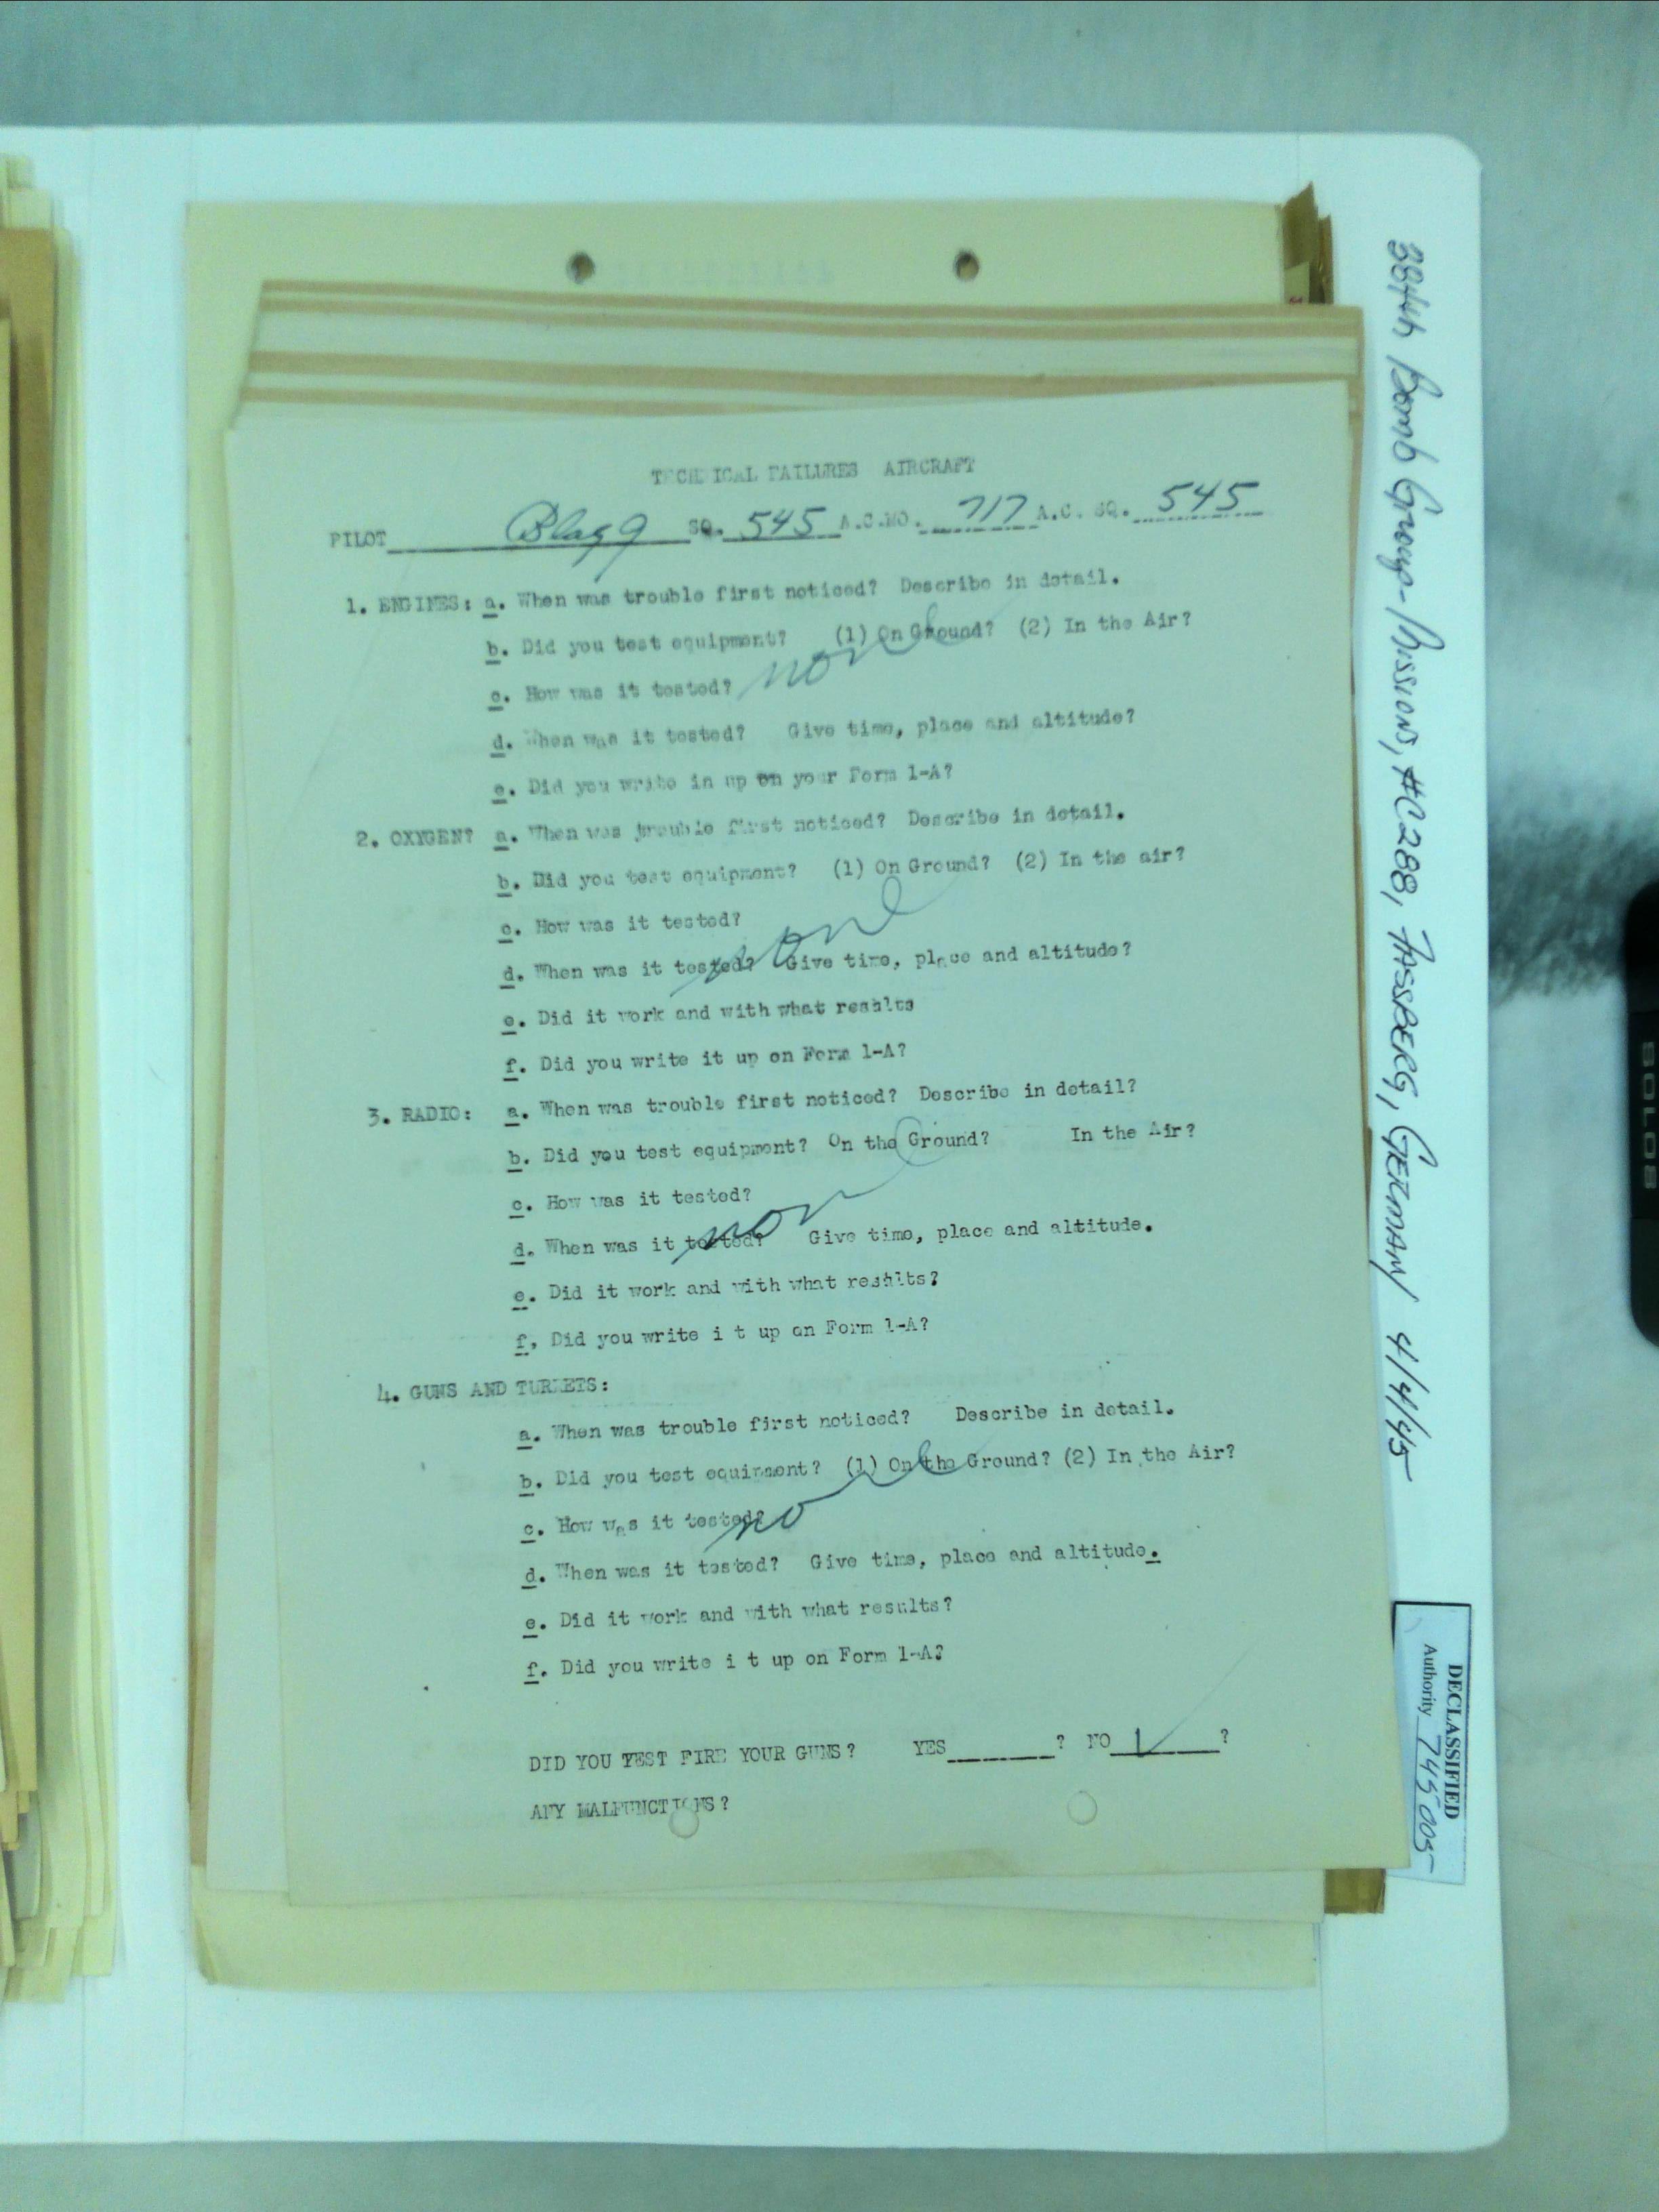 TECHNICAL FAILURES AIRCRAFT
PILOT Blagg SQ. 545 A.C.NO. 717 A.C. SQ. 545
1. ENGINES: a. When was trouble first noticed? Describe in detail.
b. Did you test equipment? (1) On Ground? (2) In the Air?
none
c. How was it tested?
d. When was it tested? Give time, place and altitude?
e. Did you write in up on your Form 1-A?
2. OXYGEN? a. When was trouble first noticed? Describe in detail.
b. Did you test equipment? (1) On Ground? (2) In the air?
c. How was it tested?
none
d. When was it tested? Give time, place and altitude?
e. Did it work and with what results
f. Did you write it up on Form 1-A?
3. RADIO: a. When was trouble first noticed? Describe in detail?
b. Did you test equipment? On the Ground? In the Air?
c. How was it tested?
none
d. When was it tested? Give time, place and altitude.
e. Did it work and with what results?
f, Did you write i t up on Form 1-A?
4. GUNS AND TURRETS:
a. When was trouble first noticed? Describe in detail.
b. Did you test equipment? (1) On the Ground? (2) In the Air?
none
c. How was it tested?
d. When was it tested? Give time, place and altitude.
e. Did it work and with what results?
f. Did you write i t up on Form 1-A?
DID YOU TEST FIRE YOUR GUNS? YES ? NO ✓ ?
ANY MALFUNCTIONS?
384th Bomb Group-Missions, #C288, FASSBERG, GERMANY 4/4/45
DECLASSIFIED
Authority 745005
SOLOS